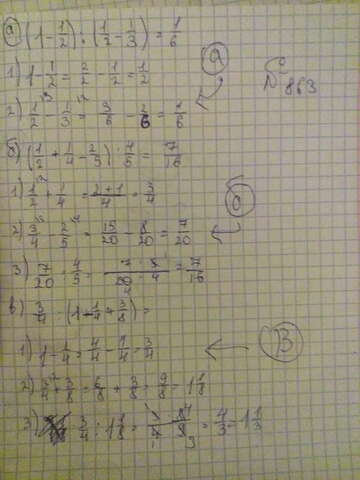 а) (1 - 1/2) : (1/2 - 1/3) = 1/6
1) 1 - 1/2 = 2/2 - 1/2 = 1/2
а
№ 863
2) 1/2 - 1/3 = 3/6 - 2/6 = 1/6
б) (1/2 + 1/4 - 2/5) : 4/5 = 7/16
1) 1/2 + 1/4 = 2+1/4 = 3/4
б
2) 3/4 - 2/5 = 15/20 - 8/20 = 7/20
3) 7/20 : 4/5 = = 7/16
в) 3/4 : (1 - 1/4 + 3/8) =
1) 1 - 1/4 = 4/4 - 1/4 = 3/4
В
2) 3/4 + 3/8 = 6/8 + 3/8 = 9/8 = 1 1/8
3) 3/4 : 1 1/8 = = 4/3 = 1 1/3